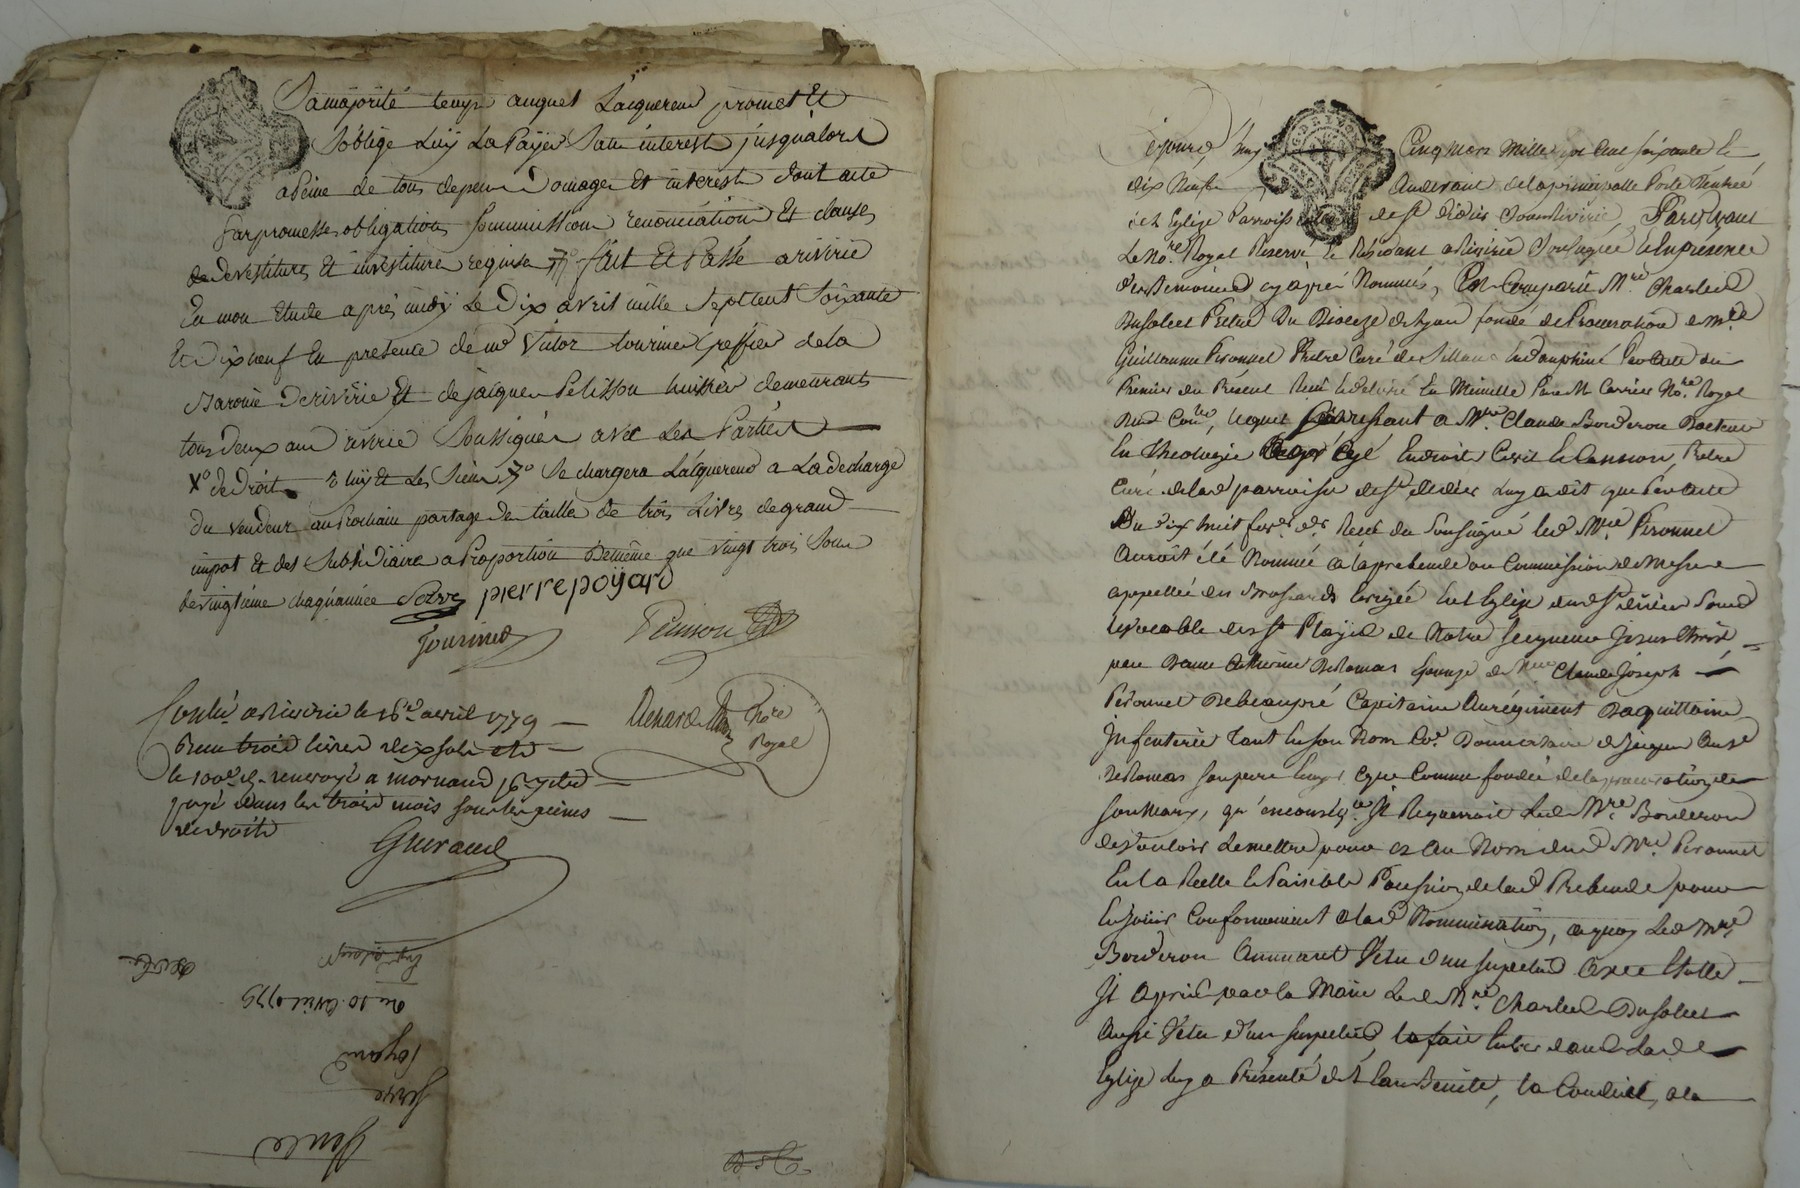 Sa majorité temps auquel Lacquereur promet Et
Soblige Luy La Payer Sans interest jusqualors
a Peine de tous depens Domages Et interests dont acte
Par promesses obligations Soumissions renonciations Et clauses
de devestitures Et investitures requises fait Et Passé a riverie
En mon Etude apres midy Le Dix avril mille Sept Cent Soixante
Et Dixneuf En presence de me Victor tourinet greffier de la
Baronie de riverie Et de jacques Pelisson huissier demeurants
tous Deux au riverie Soussignés avec Les Parties
Xo de Droit luy Et Les Siens Se chargera Lacquereur a La decharge
du vendeur au Prochain partage de taille de trois Livres de grand
impot Et des Subsidiaires a Proportion De meme que vingt trois Sous
de vingtieme chaque année Serve pierre poyard
tourinet Pelisson
Conlé a Riverie le 16e avril 1779
Reçu trois livres dix sols
le 100e d. renvoyé a mornand
payé dans les trois mois sous les peines
de droits
Guiraud
Notre
Royal
Vente
Serve
Poyard
du 10 avril 1779
Cejourd'huy Cinq mars Mille sept Cent soixante Et
dix Neuf Audevant de la principalle Porte d'entrée
de l'Eglise Parroissialle de St Didier sous Riverie, Pardevant
Le Nore. Royal Reservé Et Residant a Riverie Soussigné Et En presence
des temoins cy après Nommés, Est Comparu Mre. Charles
Dusolier Pretre Du Dioceze de Lyon fondé de Procuration de Mre
Guillaume Peronnet Pretre Curé de Sillans En Dauphiné Par Acte du
Premier du Présent Reçu Et delivré En Minutte Par Me Carrier Nore. Royal
Aud , lequel S'adressant a Mre. Claude Borderon Docteur
En Theologie En droit Civil Et Cannon, Pretre
Curé de lad parroisse de St didier Luy a dit que Par acte
Du dix huit fevr. dr. Recû du soussigné led Mre. Peronnet
Auroit été Nommé a la prebende ou Commission de Messes
appellée des Brossards Erigée En l'Eglise dud St didier Sous
le vocable des 5 Playes de Notre Seigneur Jesus Christ,
par Dame Catherine Deromas Epouze de Mre Claude Joseph
Péronnet Debeaupré Capitaine Au régiment Daquittaine
Infanterie Tant En son Nom Co. Donnataire de Jaques
Deromas son pere que Comme fondée de la procuration de
son Mary, qu'en conséqce. Il Requerroit Led Mre. Borderon
de Vouloir Le mettre pour Et Au Nom dud Mre. Peronnet
En la Réelle Et Paisible Possession de lad Prebende pour
En Jouir Conformement a lad Nomination, a quoy Led Mre.
Borderon Annuant Vetu d'un surpelis avec Etolle
Il a pris par la Main Led Mre. Charles Dusolier
Aussi Vetu d'un surpelis, la fait Entrer dans Lad
Eglize Luy a Présenté de L'eau Benite, la Conduit, a la